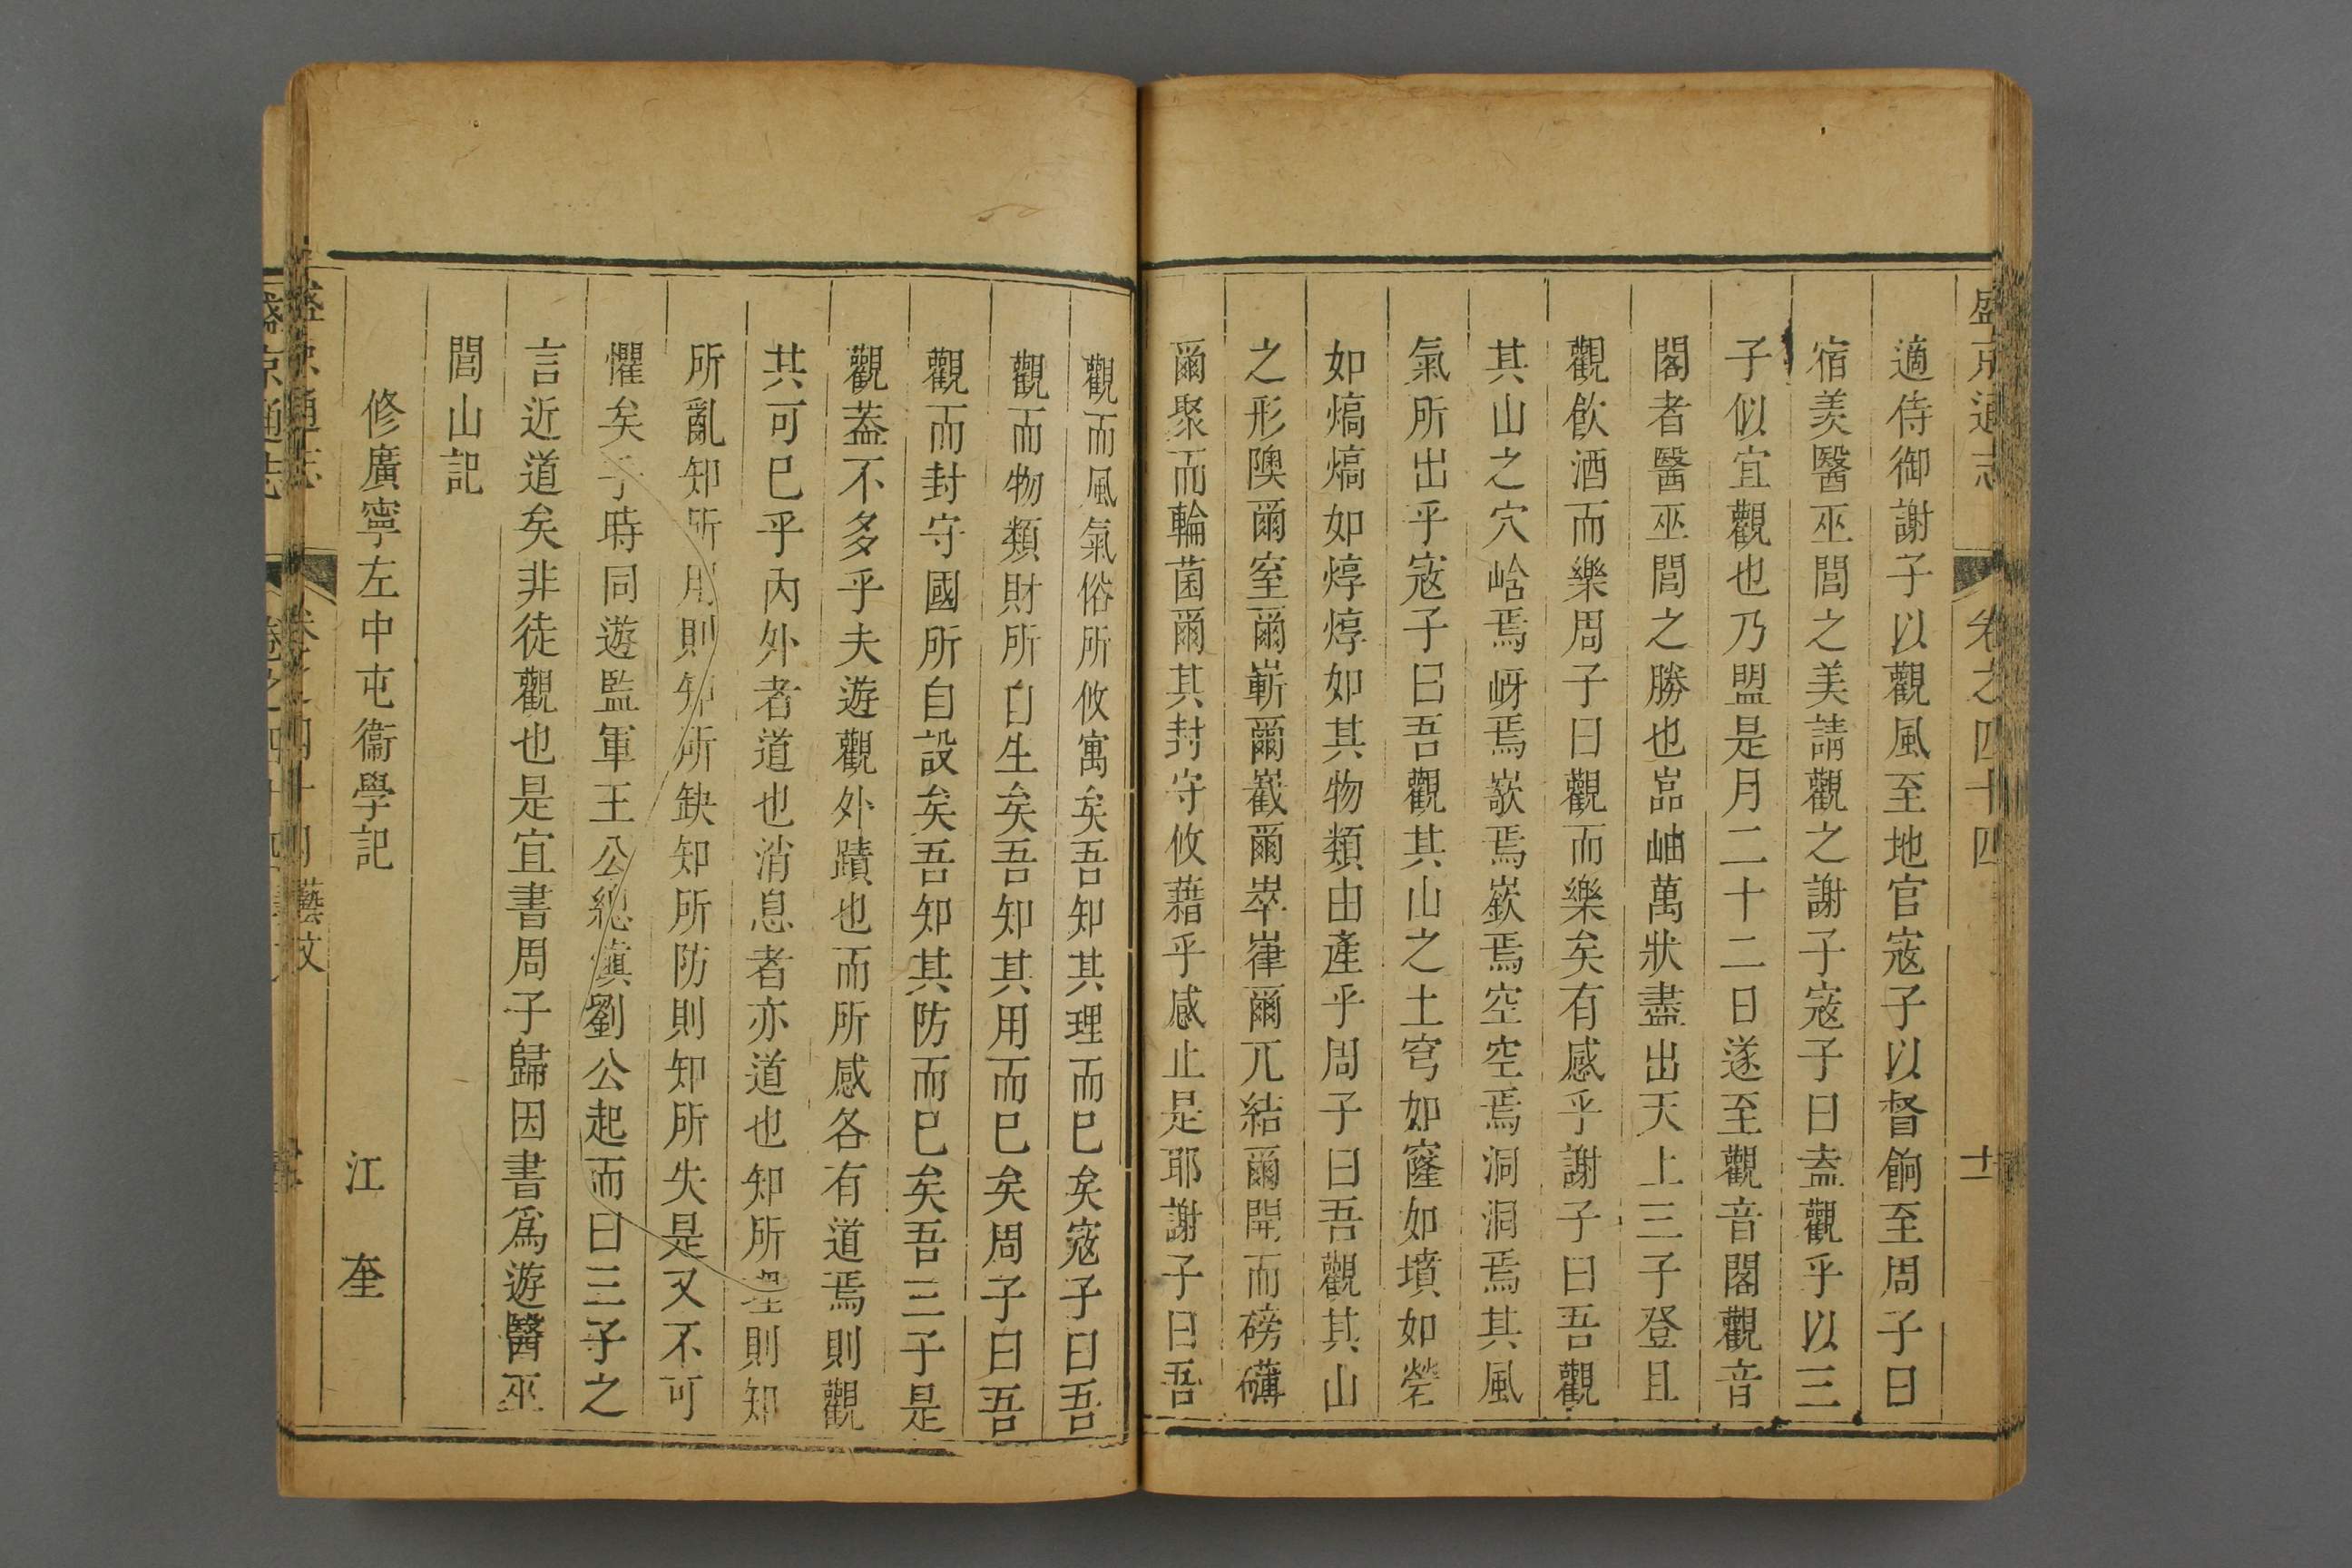 盛京通志 卷之四十四 十一
適侍御謝子以觀風至地官寇子以督餉至周子曰
宿羨醫巫閭之美請觀之謝子寇子曰盍觀乎以三
子似宜觀也乃盟是月二十二日遂至觀音閣觀音
閣者醫巫閭之勝也嵓岫萬狀盡出天上三子登且
觀飲酒而樂周子曰觀而樂矣有感乎謝子曰吾觀
其山之穴峆焉岈焉嵌焉嶔焉空空焉洞洞焉其風
氣所出乎寇子曰吾觀其山之土穹如窿如墳如塋
如熇熇如焞焞如其物類由產乎周子曰吾觀其山
之形隩爾窒爾嶄爾嶻爾崒嵂爾兀結爾開而磅礴
爾聚而輪菌爾其封守攸藉乎感止是耶謝子曰吾
觀而風氣俗所攸寓矣吾知其理而已矣寇子曰吾
觀而物類財所自生矣吾知其用而已矣周子曰吾
觀而封守國所自設矣吾知其防而已矣吾三子是
觀蓋不多乎夫遊觀外蹟也而所感各有道焉則觀
其可已乎內外者道也消息者亦道也知所理則知
所亂知所用則知所缺知所防則知所失是又不可
懼矣乎時同遊監軍王公總鎮劉公起而曰三子之
言近道矣非徒觀也是宜書周子歸因書爲遊醫巫
閭山記
修廣寧左中屯衞學記 江奎
盛京通志 卷之四十四 藝文
盛京通志